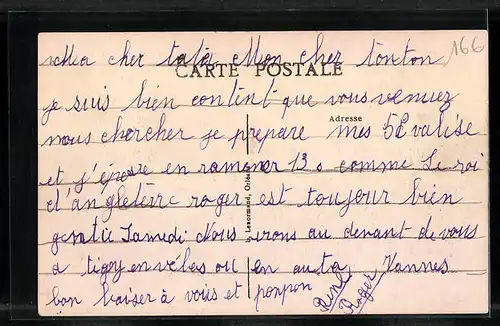 Ma cher tata Mon cher tonton
166
CARTE POSTALE
je suis bien content que vous veniez
Adresse
nous chercher je prepare mes 5 valise
et j'espere en ramener 13 comme Le roi
d'angleterre roger est toujour bien
Lenormand, Orléans
gentil Samedi Nous irons au devant de vous
a tigey en vélos ou en auto Vannes
bon baiser à vous et ponpon
René
Roger